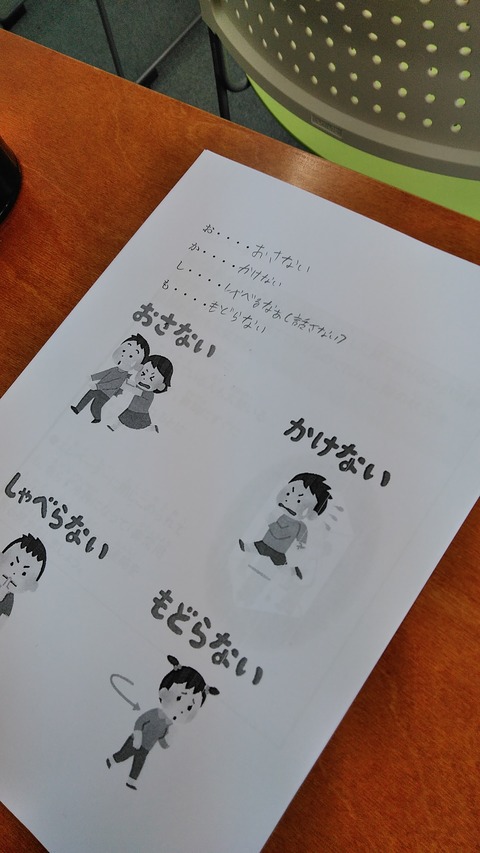 お・・・・・おさない
か・・・・・かけない
し・・・・・しゃべるな
も・・・・・もどらない
おさない
かけない
しゃべらない
もどらない